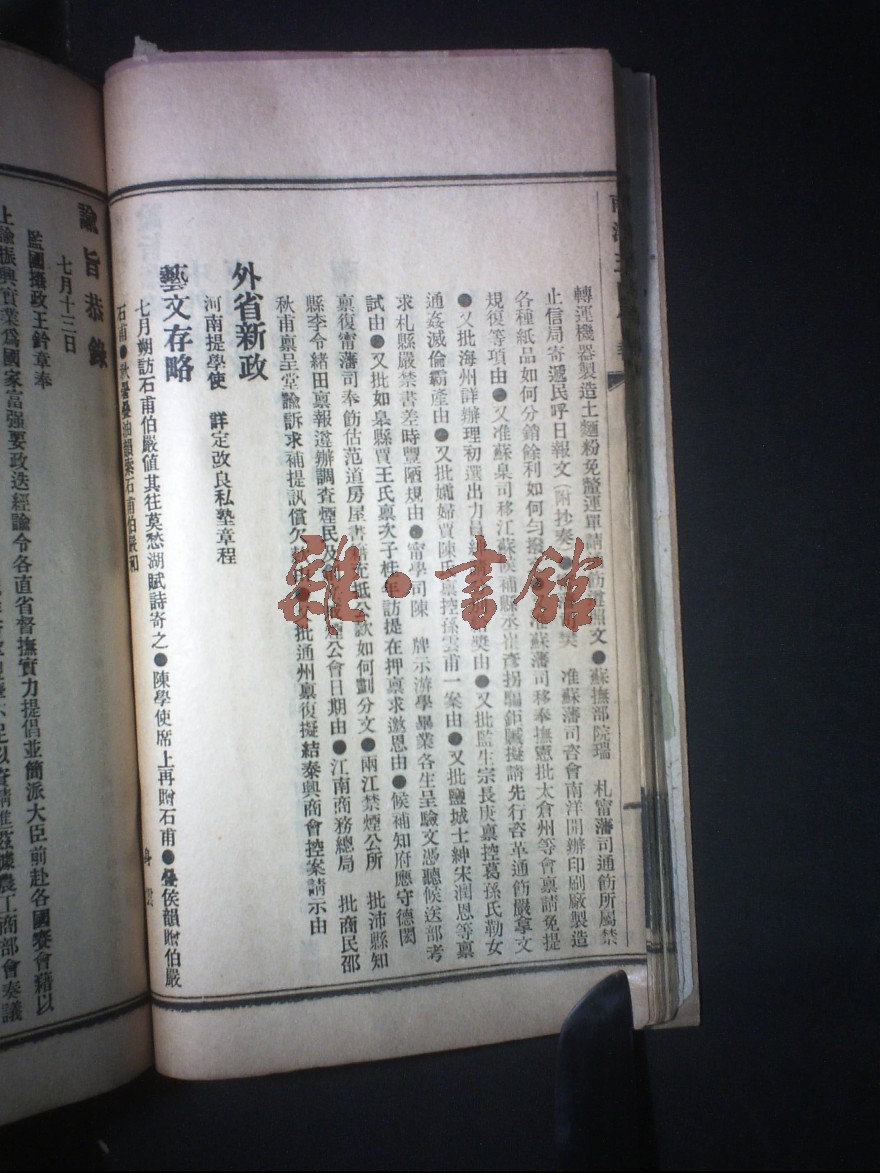 轉運機器製造土麵粉免釐運單請飭遵照文●蘇撫部院瑞 札甯藩司通飭所屬禁
止信局寄遞民呼日報文（附抄奏） 准蘇藩司咨會南洋開辦印刷廠製造
各種紙品如何分銷餘利如何勻撥 准蘇藩司移奉撫憲批太倉州等會禀請免提
規復等項由●又准蘇臬司移江蘇候補縣丞崔彥拐騙鉅贓擬請先行咨革通飭嚴拿文
●又批海州詳辦理初選出力員紳 獎由●又批監生宗長庚禀控葛孫氏勒女
通姦滅倫霸產由●又批孀婦賈陳氏禀控孫雲甫一案由●又批鹽城士紳宋潤恩等禀
求札縣嚴禁書差時豐陋規由●甯學司陳 牌示游學畢業各生呈驗文憑聽候送部考
試由●又批如臯縣賈王氏禀次子桂年訪提在押禀求邀恩由●候補知府應守德閎
禀復甯藩司奉飭估范道房屋書籍充抵公款如何劃分文●兩江禁煙公所 批沛縣知
縣李令緒田禀報遵辦調查煙民及 煙公會日期由●江南商務總局 批商民邵
秋甫禀呈堂諭訴求補提訊償欠 批通州禀復擬結泰興商會控案請示由
外省新政
河南提學使 詳定改良私塾章程
藝文存略
七月朔訪石甫伯嚴值其往莫愁湖賦詩寄之●陳學使席上再贈石甫●疊侯韻贈伯嚴
石甫●秋暑疊油韻柬石甫伯嚴
諭旨恭錄
七月十三日
監國攝政王鈐章奉
上諭振興實業爲國家富强要政迭經諭令各直省督撫實力提倡並簡派大臣前赴各國賽會藉以
農工商部會奏議
雜·書館